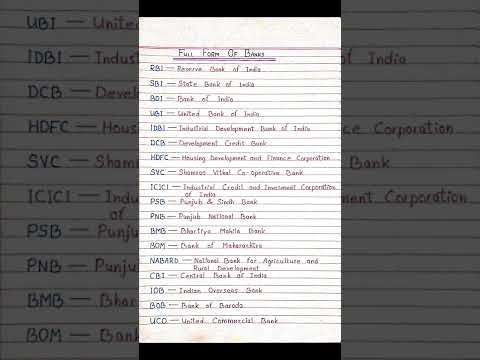 FULL FORM OF BANKS
RBI — Reserve Bank of India
SBI — State Bank of India
BOI — Bank of India
UBI — United Bank of India
IDBI — Industrial Development Bank of India
DCB — Development Credit Bank
HDFC — Housing Development and Finance Corporation
SVC — Shamrao Vithal Co-operative Bank
ICICI — Industrial Credit and Invesment Corporation
of India
PSB — Punjab & Sindh Bank
PNB — Punjab National Bank
BMB — Bhartiya Mahila Bank
BOM — Bank of Maharashtra
NABARD — National Bank for Agriculture and
Rural Development
CBI — Central Bank of India
IOB — Indian Overseas Bank
BOB — Bank of Baroda
UCO — United Commercial Bank
UBI — United
IDBI — Indust
DCB — Devel
HDFC — Hous
SVC — Sham
ICICI — Indu
of
PSB — Punja
PNB — Punja
BMB — Bhar
BOM — Bank
India
of India
Corporation
Bank
Corporation